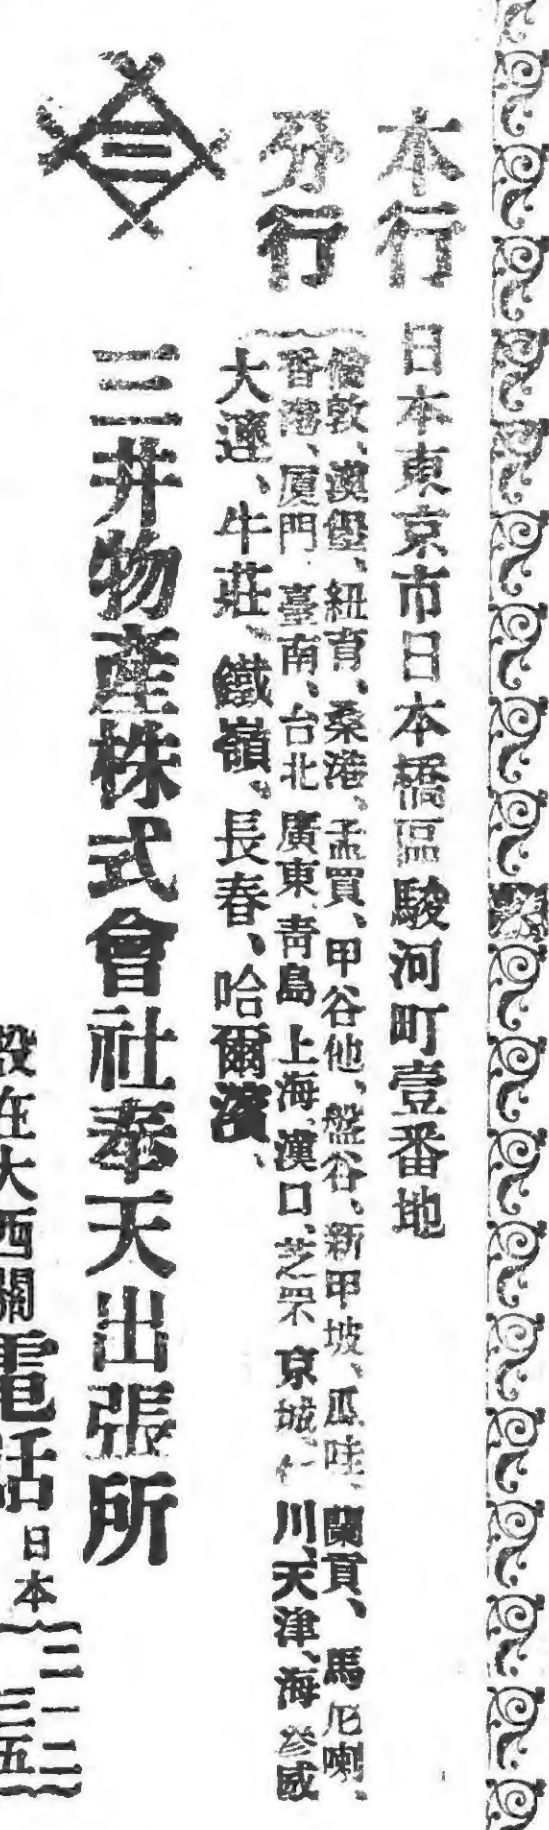 本行 日本東京市日本橋區駿河町壹番地
分行
倫敦、漢堡、紐育、桑港、孟買、甲谷他、盤谷、新甲坡、瓜哇、蘭貢、馬尼喇、
香港、厦門、臺南、台北、廣東、青島、上海、漢口、芝罘、京城、仁川、天津、海參威
大連、牛莊、鐵嶺、長春、哈爾濱、
三井物產株式會社奉天出張所
設在大西關 電話 日本
二一二
三五